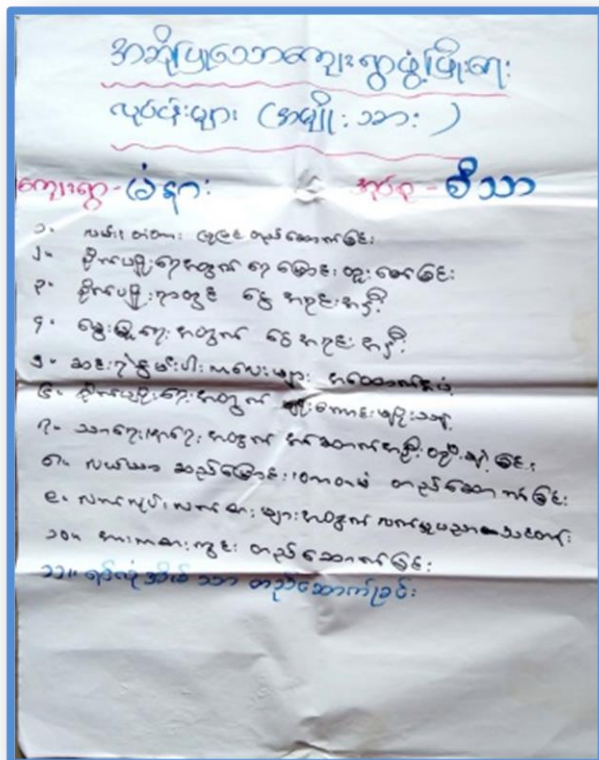 အဆိုပြုသောကျေးရွာဖွံ့ဖြိုးရေး
လုပ်ငန်းများ (အမျိုးသား)
ကျေးရွာ - အုပ်စု - စီသာ
၁။ လမ်း၊ တံတား တည်ဆောက်ခြင်း
၂။ စိုက်ပျိုးရေးအတွက် ရေမြောင်း တူးဖော်ခြင်း
၃။ စိုက်ပျိုး ငွေ အရင်းအနှီး
၄။ မွေးမြူရေးအတွက် ငွေ အရင်းအနှီး
၅။ ဆင်းရဲနွမ်းပါး ကလေးများ အထောက်အပံ့
၆။ စိုက်ပျိုးရေးအတွက် မျိုးကောင်းမျိုးသန့်
၇။ အတွက် အဆောက်အဦး ခြင်း
၈။ လယ်ယာ ဆည်မြောင်း၊ တာတမံ တည်ဆောက်ခြင်း
၉။ လက်လုပ်လက်စားများအတွက် လက်မှုပညာသင်တန်း
၁၀။ အားကစားကွင်း တည်ဆောက်ခြင်း
၁၁။ တည်ဆောက်ခြင်း